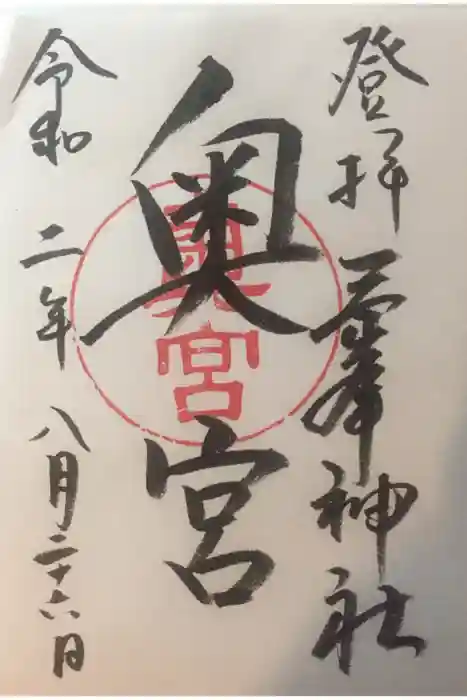 登拝 三峯神社
奥宮
奥宮
令和 二年 八月二十六日